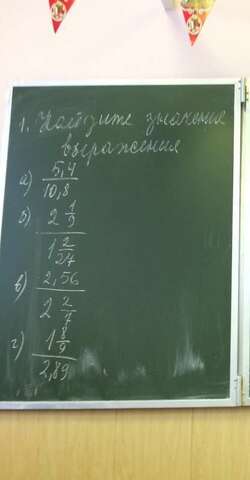 1. Найдите значение
выражения
а) 5,4
10,8
б) 2 1/3
1 2/27
в) 2,56
2 2/7
г) 1 8/9
2,89